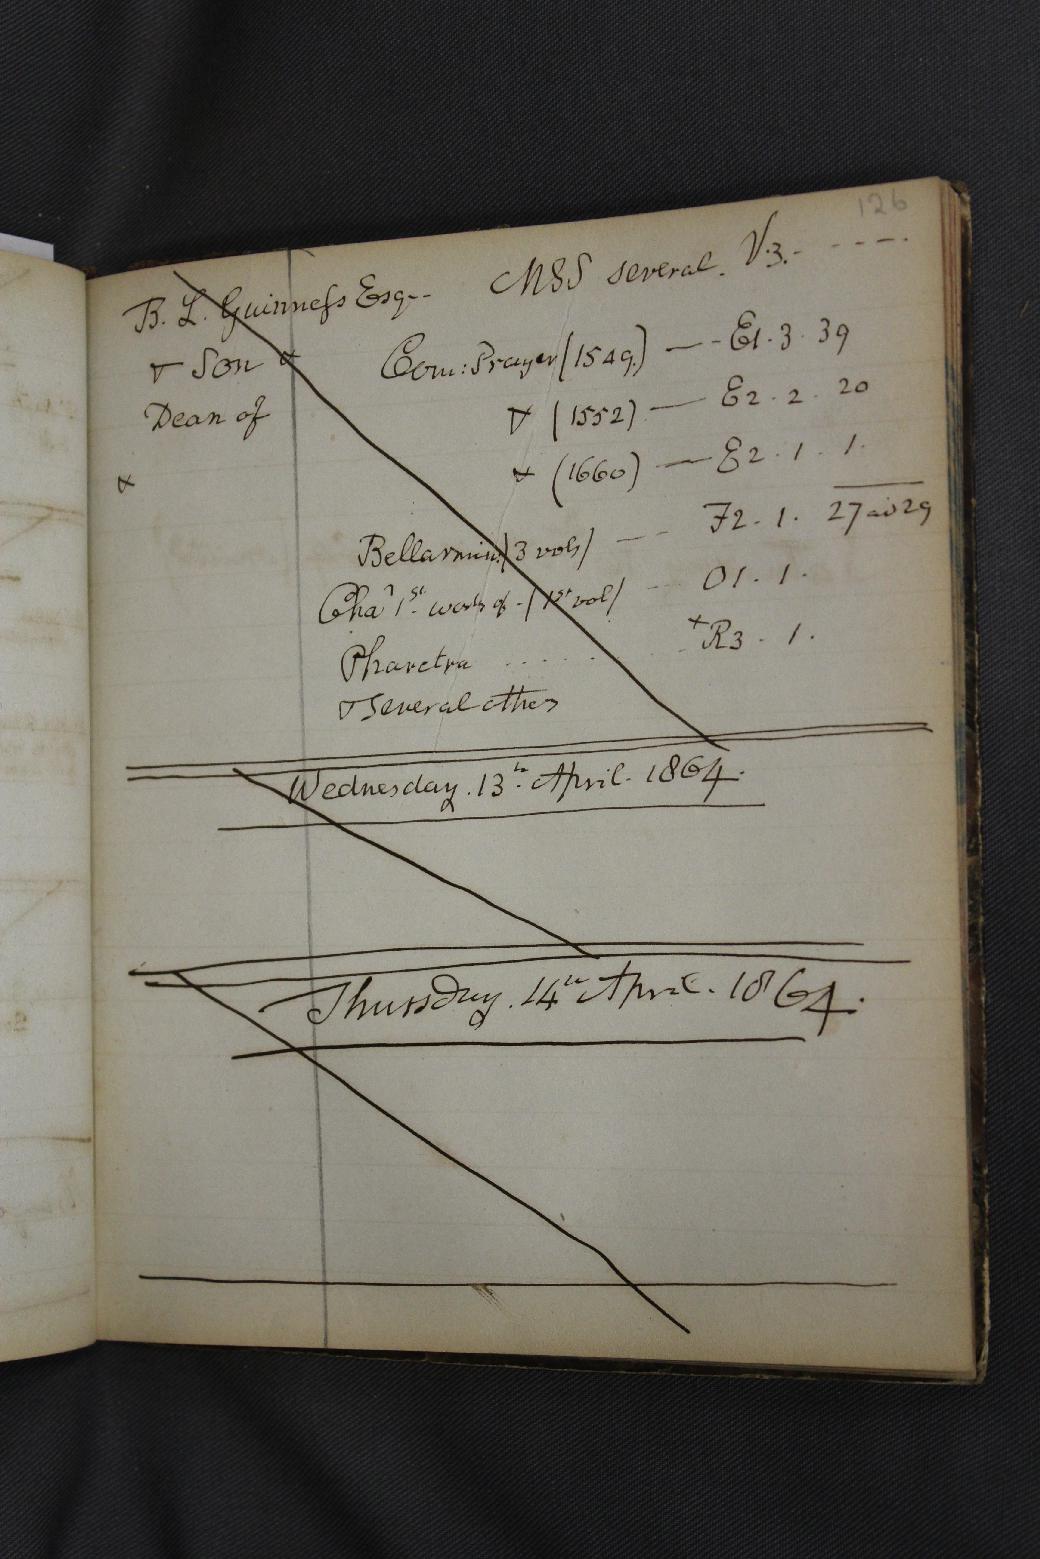 126
B. L. Guinness Esq-- MSS several. V.3.- ---.
& Son & Com: Prayer (1549) — - E1. 3. 39
Dean of & (1552) — E2. 2. 20
& & (1660) — E2. 1. 1.
Bellarmin (3 vols) — - F2. 1. 27 ad 29
Chaˢ 1ˢᵗ works of - (1ˢᵗ vol) - O1. 1.
Pharetra ..... R3. 1.
& Several others
Wednesday. 13ᵗʰ April. 1864.
Thursday. 14ᵗʰ April. 1864.